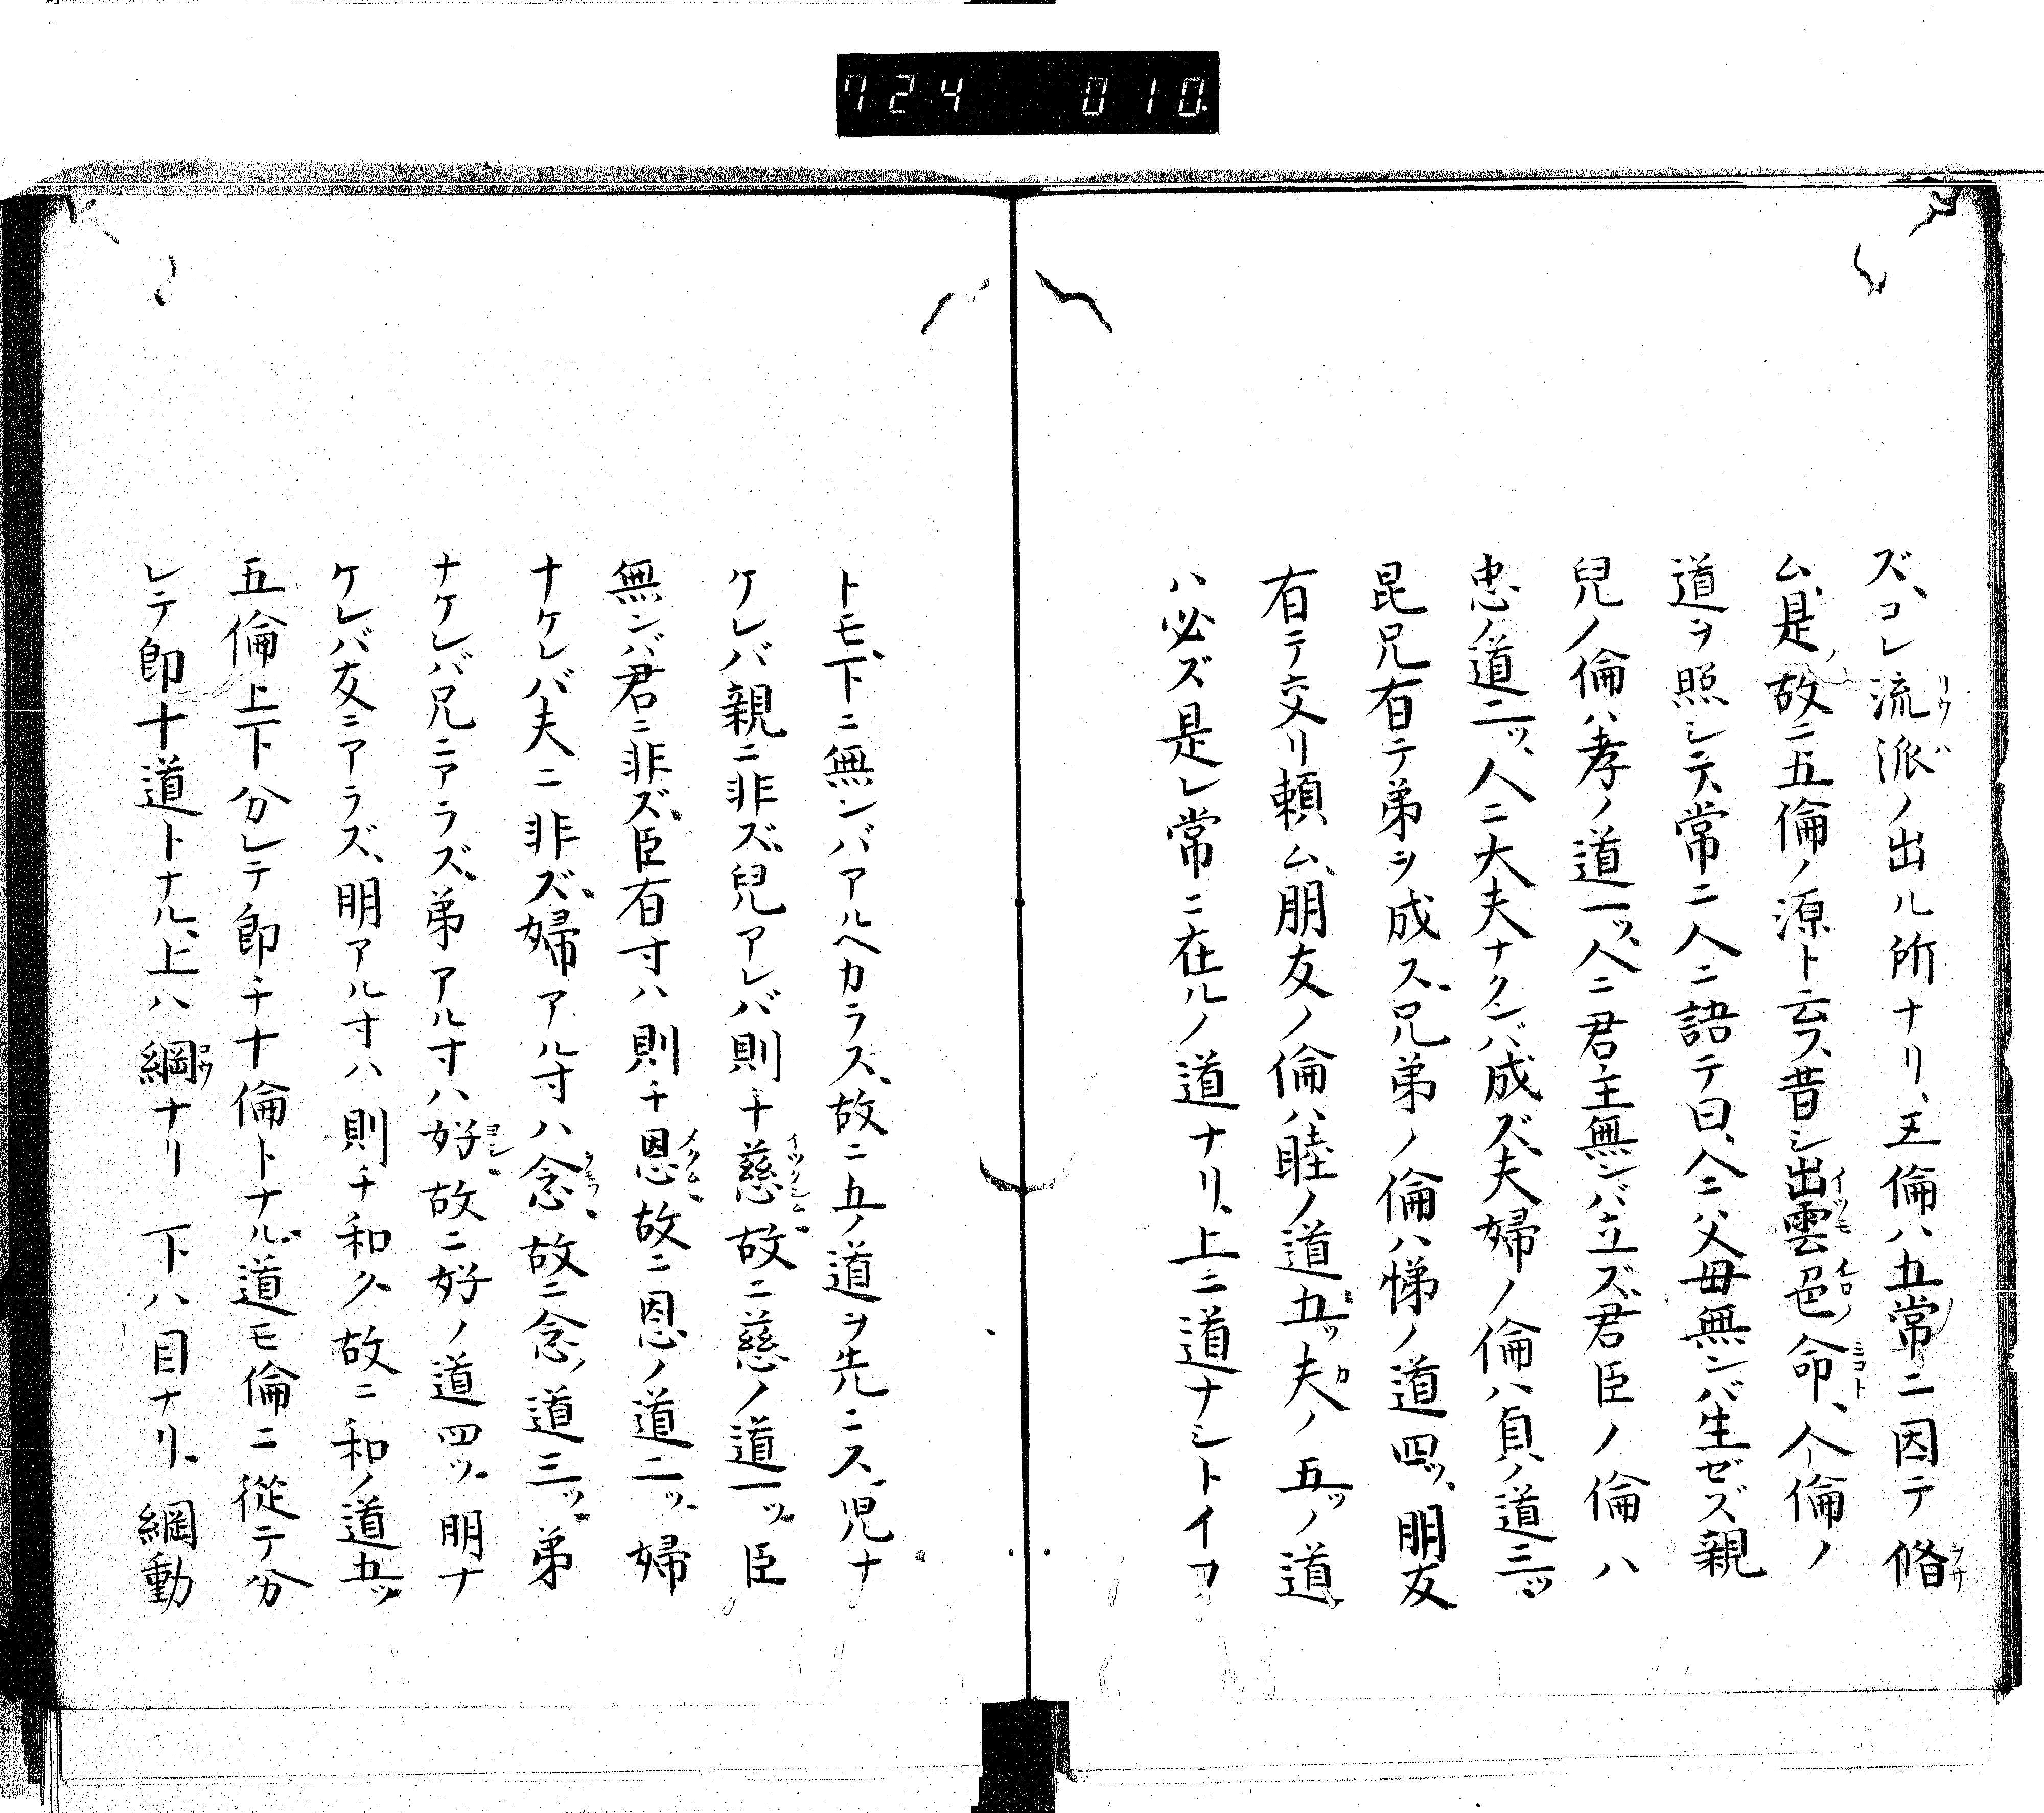 724 010
ズ、コレ流派ノ出ル所ナリ、五倫ハ五常ニ因テ脩
ム、是故ニ五倫ノ源ト云フ、昔シ出雲色命、人倫ノ
道ヲ照シテ、常ニ人ニ語テ曰、人ニ父母無ンバ生ゼズ親
兒ノ倫ハ孝ノ道一ツ、人ニ君主無ンバ立ズ、君臣ノ倫ハ
忠ノ道二ツ、人ニ大夫ナクンバ成ズ、夫婦ノ倫ハ貞ノ道三ツ
昆兄有テ弟ヲ成ス、兄弟ノ倫ハ悌ノ道四ツ、朋友
有テ交リ頼ム、朋友ノ倫ハ睦ノ道五ツ、夫ノ五ツノ道
ハ必ズ是レ常ニ在ルノ道ナリ、上ニ道ナシトイフ
トモ、下ニ無ンバアルヘカラス、故ニ五ノ道ヲ先ニス、児ナ
ケレバ親ニ非ズ、兒アレバ則チ慈、故ニ慈ノ道一ツ、臣
無ンバ君ニ非ズ、臣有寸ハ則チ恩、故ニ恩ノ道二ツ、婦
ナケレバ夫ニ非ズ、婦アル寸ハ念、故ニ念ノ道三ツ、弟
ナケレバ兄ニアラズ、弟アル寸ハ好、故ニ好ノ道四ツ、朋ナ
ケレバ友ニアラズ、朋アル寸ハ則チ和ク、故ニ和ノ道五ツ
五倫上下分レテ即チ十倫トナル、道モ倫ニ從テ分
レテ即十道トナル、上ハ綱ナリ 下ハ目ナリ、綱動